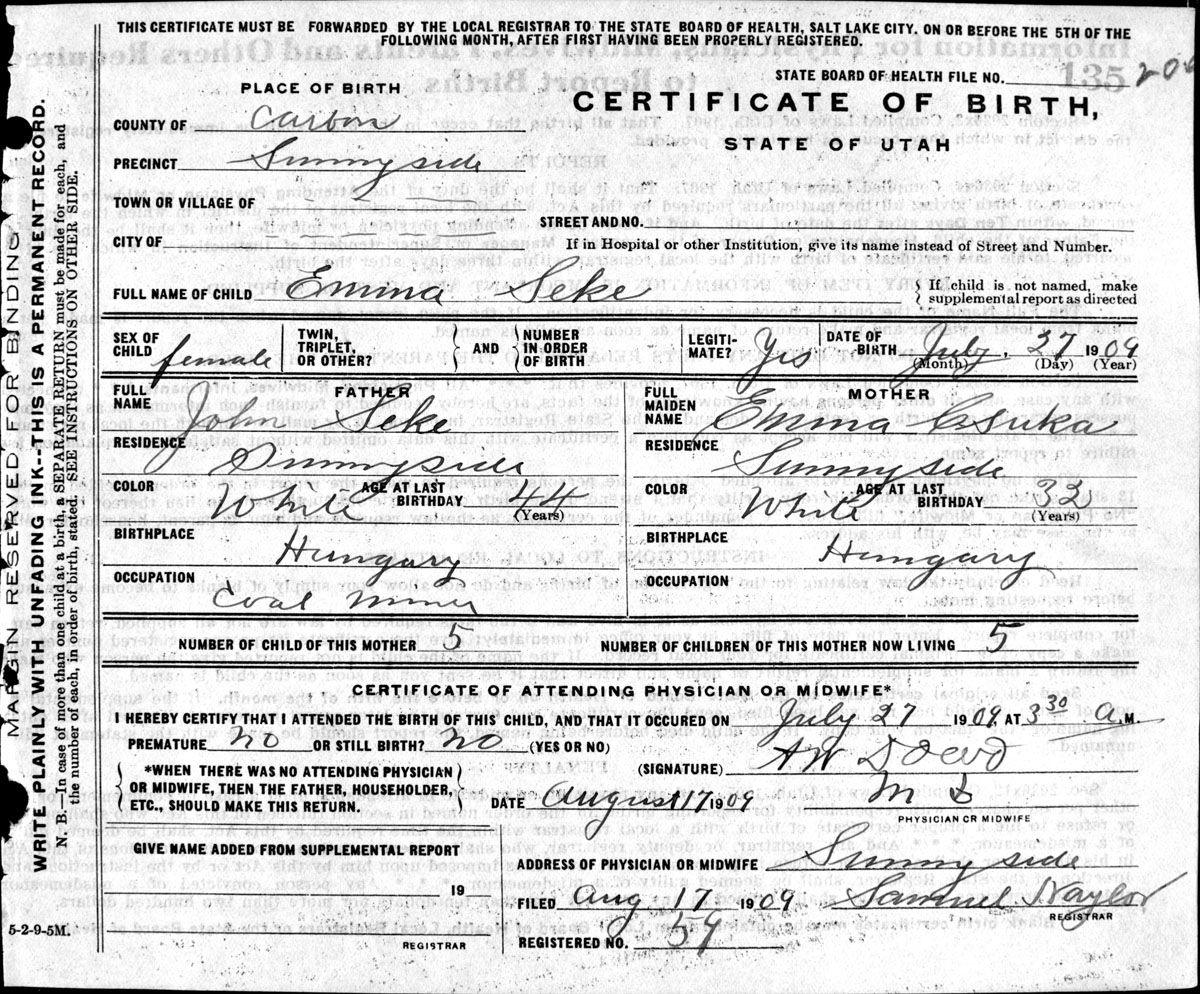 THIS CERTIFICATE MUST BE FORWARDED BY THE LOCAL REGISTRAR TO THE STATE BOARD OF HEALTH, SALT LAKE CITY. ON OR BEFORE THE 5TH OF THE
FOLLOWING MONTH, AFTER FIRST HAVING BEEN PROPERLY REGISTERED.
STATE BOARD OF HEALTH FILE NO.
135
PLACE OF BIRTH
CERTIFICATE OF BIRTH,
COUNTY OF Carbon
STATE OF UTAH
PRECINCT Sunnyside
TOWN OR VILLAGE OF
STREET AND NO.
CITY OF
If in Hospital or other Institution, give its name instead of Street and Number.
FULL NAME OF CHILD Emma Seke { If child is not named, make
supplemental report as directed
SEX OF CHILD female TWIN, TRIPLET, OR OTHER? { AND } NUMBER IN ORDER OF BIRTH LEGITIMATE? Yes DATE OF BIRTH July, 27 1909
(Month) (Day) (Year)
FATHER
FULL NAME John Seke
RESIDENCE Sunnyside
COLOR White AGE AT LAST BIRTHDAY 44
(Years)
BIRTHPLACE
Hungary
OCCUPATION
Coal miner
MOTHER
FULL MAIDEN NAME Emma Csuka
RESIDENCE Sunnyside
COLOR White AGE AT LAST BIRTHDAY 33
(Years)
BIRTHPLACE
Hungary
OCCUPATION
NUMBER OF CHILD OF THIS MOTHER 5 NUMBER OF CHILDREN OF THIS MOTHER NOW LIVING 5
CERTIFICATE OF ATTENDING PHYSICIAN OR MIDWIFE*
I HEREBY CERTIFY THAT I ATTENDED THE BIRTH OF THIS CHILD, AND THAT IT OCCURED ON July 27 1909, AT 3 30 A.M.
PREMATURE no OR STILL BIRTH? no (YES OR NO)
(SIGNATURE) A W Dowd
{ *WHEN THERE WAS NO ATTENDING PHYSICIAN
OR MIDWIFE, THEN THE FATHER, HOUSEHOLDER,
ETC., SHOULD MAKE THIS RETURN. }
DATE August 17 1909 M D
PHYSICIAN OR MIDWIFE
GIVE NAME ADDED FROM SUPPLEMENTAL REPORT
ADDRESS OF PHYSICIAN OR MIDWIFE Sunnyside
19
REGISTRAR
FILED Aug 17 1909 Samuel Naylor
REGISTRAR
REGISTERED NO. 59
MARGIN RESERVED FOR BINDING
WRITE PLAINLY WITH UNFADING INK--THIS IS A PERMANENT RECORD.
N. B.—In case of more than one child at a birth, a SEPARATE RETURN must be made for each, and
the number of each, in order of birth, stated. SEE INSTRUCTIONS ON OTHER SIDE.
5-2-9-5M.